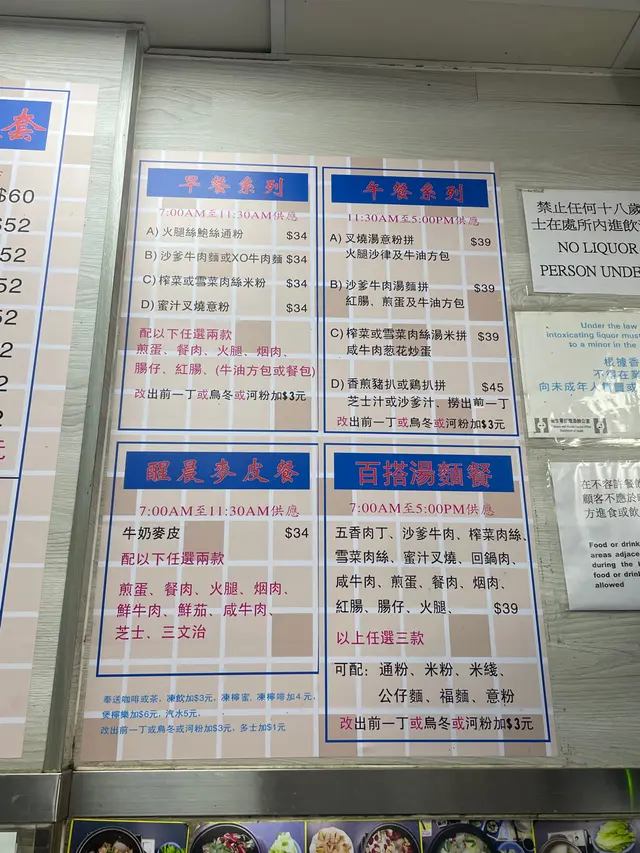 套
$60
$52
52
52
52
2
2
2
元
早餐系列
7:00AM至11:30AM供應
A) 火腿絲鮑絲通粉 $34
B) 沙爹牛肉麵或XO牛肉麵 $34
C) 榨菜或雪菜肉絲米粉 $34
D) 蜜汁叉燒意粉 $34
配以下任選兩款
煎蛋、餐肉、火腿、烟肉、
腸仔、紅腸、(牛油方包或餐包)
改出前一丁或烏冬或河粉加$3元
午餐系列
11:30AM至5:00PM供應
A) 叉燒湯意粉拼 $39
火腿沙律及牛油方包
B) 沙爹牛肉湯麵拼 $39
紅腸、煎蛋及牛油方包
C) 榨菜或雪菜肉絲湯米拼 $39
咸牛肉葱花炒蛋
D) 香煎豬扒或鷄扒拼 $45
芝士汁或沙爹汁、撈出前一丁
改出前一丁或烏冬或河粉加$3元
醒晨麥皮餐
7:00AM至11:30AM供應
牛奶麥皮 $34
配以下任選兩款
煎蛋、餐肉、火腿、烟肉、
鮮牛肉、鮮茄、咸牛肉、
芝士、三文治
奉送咖啡或茶、凍飲加$3元、凍檸蜜、凍檸啡加4元、
煲檸樂加$6元、汽水5元、
改出前一丁或烏冬或河粉加$3元、多士加$1元
百搭湯麵餐
7:00AM至5:00PM供應
五香肉丁、沙爹牛肉、榨菜肉絲、
雪菜肉絲、蜜汁叉燒、回鍋肉、
咸牛肉、煎蛋、餐肉、烟肉、
紅腸、腸仔、火腿、 $39
以上任選三款
可配：通粉、米粉、米綫、
公仔麵、福麵、意粉
改出前一丁或烏冬或河粉加$3元
禁止任何十八歲
士在處所內進飲
NO LIQUOR
PERSON UNDE
Under the law
intoxicating liquor must
to a minor in the
根據香
不得在
向未成年人售賣或
在不容許餐飲
顧客不應於
方進食或飲
Food or drink
areas adjace
during the
food or drin
allowed